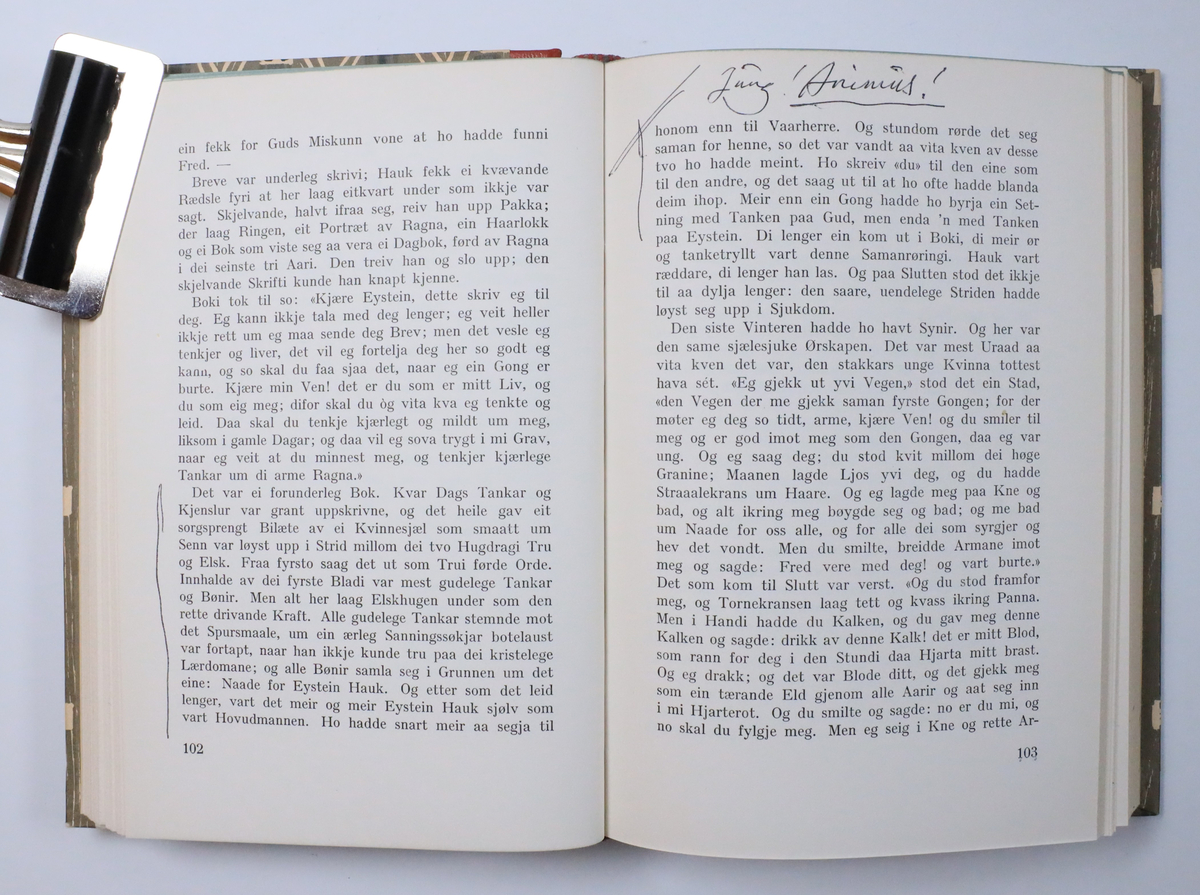 ein fekk for Guds Miskunn vone at ho hadde funni
Fred. —
Breve var underleg skrivi; Hauk fekk ei kvævande
Rædsle fyri at her laag eitkvart under som ikkje var
sagt. Skjelvande, halvt ifraa seg, reiv han upp Pakka;
der laag Ringen, eit Portræt av Ragna, ein Haarlokk
og ei Bok som viste seg aa vera ei Dagbok, førd av Ragna
i dei seinste tri Aari. Den treiv han og slo upp; den
skjelvande Skrifti kunde han knapt kjenne.
Boki tok til so: «Kjære Eystein, dette skriv eg til
deg. Eg kann ikkje tala med deg lenger; eg veit heller
ikkje rett um eg maa sende deg Brev; men det vesle eg
tenkjer og liver, det vil eg fortelja deg her so godt eg
kann, og so skal du faa sjaa det, naar eg ein Gong er
burte. Kjære min Ven! det er du som er mitt Liv, og
du som eig meg; difor skal du òg vita kva eg tenkte og
leid. Daa skal du tenkje kjærlegt og mildt um meg,
liksom i gamle Dagar; og daa vil eg sova trygt i mi Grav,
naar eg veit at du minnest meg, og tenkjer kjærlege
Tankar um di arme Ragna.»
Det var ei forunderleg Bok. Kvar Dags Tankar og
Kjenslur var grant uppskrivne, og det heile gav eit
sorgsprengt Bilæte av ei Kvinnesjæl som smaatt um
Senn var løyst upp i Strid millom dei tvo Hugdragi Tru
og Elsk. Fraa fyrsto saag det ut som Trui førde Orde.
Innhalde av dei fyrste Bladi var mest gudelege Tankar
og Bønir. Men alt her laag Elskhugen under som den
rette drivande Kraft. Alle gudelege Tankar stemnde mot
det Spursmaale, um ein ærleg Sanningssøkjar botelaust
var fortapt, naar han ikkje kunde tru paa dei kristelege
Lærdomane; og alle Bønir samla seg i Grunnen um det
eine: Naade for Eystein Hauk. Og etter som det leid
lenger, vart det meir og meir Eystein Hauk sjølv som
vart Hovudmannen. Ho hadde snart meir aa segja til
102
Jung! Animus!
honom enn til Vaarherre. Og stundom rørde det seg
saman for henne, so det var vandt aa vita kven av desse
tvo ho hadde meint. Ho skreiv «du» til den eine som
til den andre, og det saag ut til at ho ofte hadde blanda
deim ihop. Meir enn ein Gong hadde ho byrja ein Set-
ning med Tanken paa Gud, men enda 'n med Tanken
paa Eystein. Di lenger ein kom ut i Boki, di meir ør
og tanketryllt vart denne Samanrøringi. Hauk vart
ræddare, di lenger han las. Og paa Slutten stod det ikkje
til aa dylja lenger: den saare, uendelege Striden hadde
løyst seg upp i Sjukdom.
Den siste Vinteren hadde ho havt Synir. Og her var
den same sjælesjuke Ørskapen. Det var mest Uraad aa
vita kven det var, den stakkars unge Kvinna tottest
hava sét. «Eg gjekk ut yvi Vegen,» stod det ein Stad,
«den Vegen der me gjekk saman fyrste Gongen; for der
møter eg deg so tidt, arme, kjære Ven! og du smiler til
meg og er god imot meg som den Gongen, daa eg var
ung. Og eg saag deg; du stod kvit millom dei høge
Granine; Maanen lagde Ljos yvi deg, og du hadde
Straalekrans um Haare. Og eg lagde meg paa Kne og
bad, og alt ikring meg bøygde seg og bad; og me bad
um Naade for oss alle, og for alle dei som syrgjer og
hev det vondt. Men du smilte, breidde Armane imot
meg og sagde: Fred vere med deg! og vart burte.»
Det som kom til Slutt var verst. «Og du stod framfor
meg, og Tornekransen laag tett og kvass ikring Panna.
Men i Handi hadde du Kalken, og du gav meg denne
Kalken og sagde: drikk av denne Kalk! det er mitt Blod,
som rann for deg i den Stundi daa Hjarta mitt brast.
Og eg drakk; og det var Blode ditt, og det gjekk meg
som ein tærande Eld gjenom alle Aarir og aat seg inn
i mi Hjarterot. Og du smilte og sagde: no er du mi, og
no skal du fylgje meg. Men eg seig i Kne og rette Ar-
103